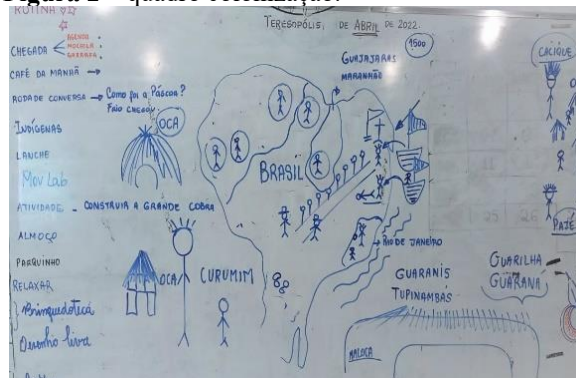 Figura 2 – quadro colonização.
ROTINA
TERESÓPOLIS, DE ABRIL DE 2022.
CHEGADA
AGENDA
MOCHILA
GARRAFA
CAFÉ DA MANHÃ
RODA DE CONVERSA → Como foi a Páscoa?
INDÍGENAS
LANCHE
Mov Lab
ATIVIDADE - CONSTRUIR A GRANDE COBRA
ALMOÇO
PARQUINHO
RELAXAR
Brinquedoteca
Desenho livre
OCA
OCA
CURUMIM
BRASIL
GUAJAJARAS
MARANHÃO
1500
RIO DE JANEIRO
GUARANIS
TUPINAMBÁS
MALOCA
CACIQUE
PAJÉ
GUARILHA
GUARANÁ